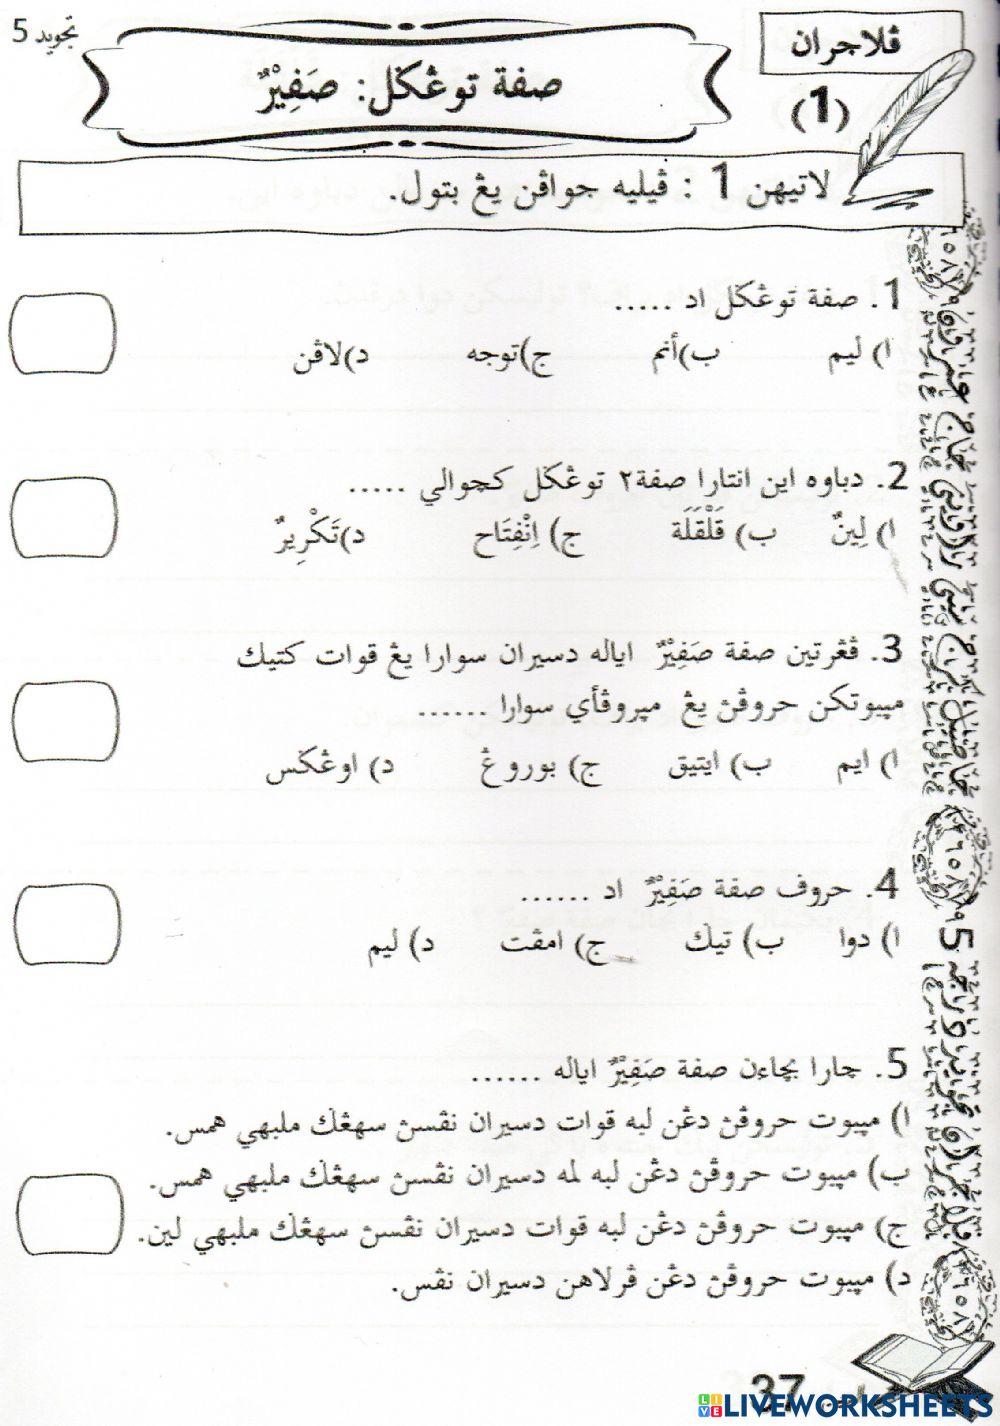 تجويد 5
ڤلاجرن
(1)
صفة توڠݢل: صَفِيْرٌ
لاتيهن 1 : ڤيليه جواڤن يڠ بتول.
1. صفة توڠݢل اد .....
ا) ليم ب)أنم ج)توجه د)لاڤن
2. دباوه اين انتارا صفة٢ توڠݢل كچوالي .....
ا) لِينٌ ب) قَلْقَلَة ج) اِنْفِتَاح د)تَكْرِيرٌ
3. ڤڠرتين صفة صَفِيْرٌ اياله دسيران سوارا يڠ قوات كتيك
مڽبوتكن حروفڽ يڠ مڽروڤأي سوارا ......
ا) ايم ب) ايتيق ج) بوروڠ د) اوڠݢس
4. حروف صفة صَفِيْرٌ اد ......
ا) دوا ب) تيݢ ج) امڤت د) ليم
5. چارا بچاءن صفة صَفِيْرٌ اياله ......
ا) مڽبوت حروفڽ دڠن لبه قوات دسيران نفسڽ سهڠݢ ملبهي همس.
ب) مڽبوت حروفڽ دڠن لبه لمه دسيران نفسڽ سهڠݢ ملبهي همس.
ج) مڽبوت حروفڽ دڠن لبه قوات دسيران نفسڽ سهڠݢ ملبهي لين.
د) مڽبوت حروفڽ دڠن ڤرلاهن دسيران نفس.
37
LIVEWORKSHEETS